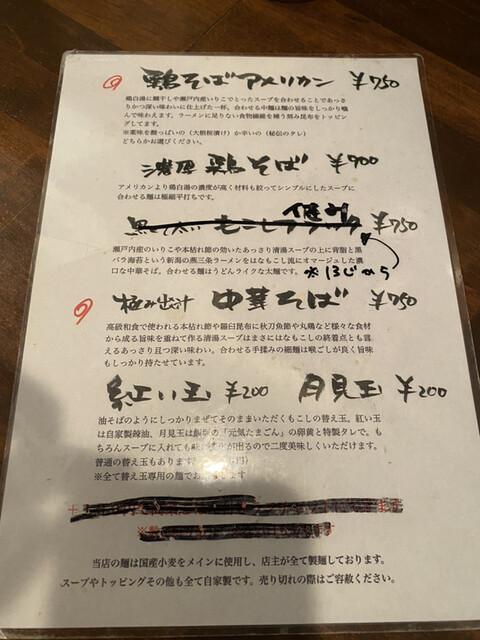 鶏そばアメリカン ¥750
鶏白湯に鯛干しや瀬戸内産いりこでとったスープを合わせることであっさ
りかつ深い味わいに仕上げた一杯。合わせる中麺は麺の旨味をしっかり噛
んで味わえます。ラーメンに足りない食物繊維を補う刻み昆布をトッピン
グしてます。
※薬味を酸っぱいの(大根桜漬け)か辛いの(秘伝のタレ)
どちらかお選びください。
濃厚 鶏そば ¥900
アメリカンより鶏白湯の濃度が高く材料も絞ってシンプルにしたスープに
合わせる麺は極細平打ちです。
休み
もこしブラック ¥750
瀬戸内産のいりこや本枯れ節の効いたあっさり清湯スープの上に背脂と黒
バラ海苔という新潟の燕三条ラーメンをはなもこし流にオマージュした濃
口な中華そば。合わせる麺はうどんライクな太麺です。
※13じから
極み出汁 中華そば ¥750
高級和食で使われる本枯れ節や羅臼昆布に秋刀魚節や丸鶏など様々な食材
から成る旨味を重ねて作る清湯スープはまさにはなもこしの終着点とも言
えるあっさり且つ深い味わい。合わせる手揉みの細麺は喉ごしが良く旨味
もしっかり持たせています。
紅い玉 ¥200 月見玉 ¥200
油そばのようにしっかりまぜてそのままいただくもこしの替え玉。紅い玉
は自家製辣油、月見玉は飯塚の「元気たまごん」の卵黄と特製タレで。も
ちろんスープに入れても味変りが出るので二度美味しくいただけます。
普通の替え玉もあります。
※全て替え玉専用の麺でお出しします
当店の麺は国産小麦をメインに使用し、店主が全て製麺しております。
スープやトッピングその他も全て自家製です。売り切れの際はご容赦ください。